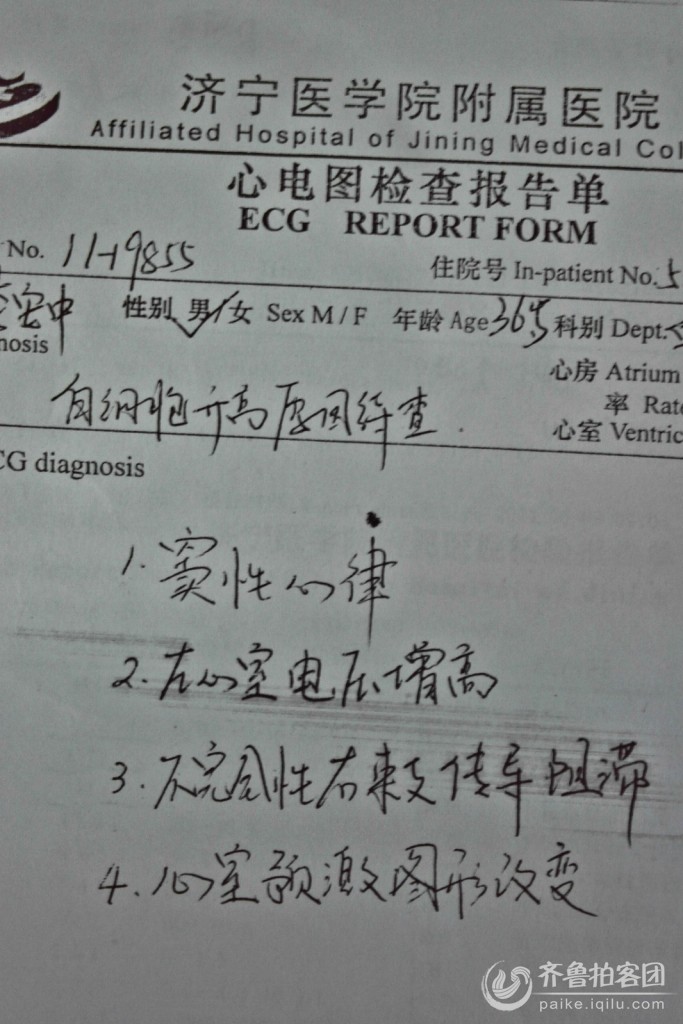 济宁医学院附属医院
Affiliated Hospital of Jining Medical Col
心电图检查报告单
ECG REPORT FORM
No. 11-19855
住院号 In-patient No. 5
中 性别 男/女 Sex M / F 年龄 Age 36岁 科别 Dept.
nosis
心房 Atrium
率 Rate
心室 Ventric
白细胞升高原因待查.
CG diagnosis
1. 窦性心律
2. 左心室电压增高
3. 不完全性右束支传导阻滞
4. 心室预激图形改变
齐鲁拍客团
paike.iqilu.com